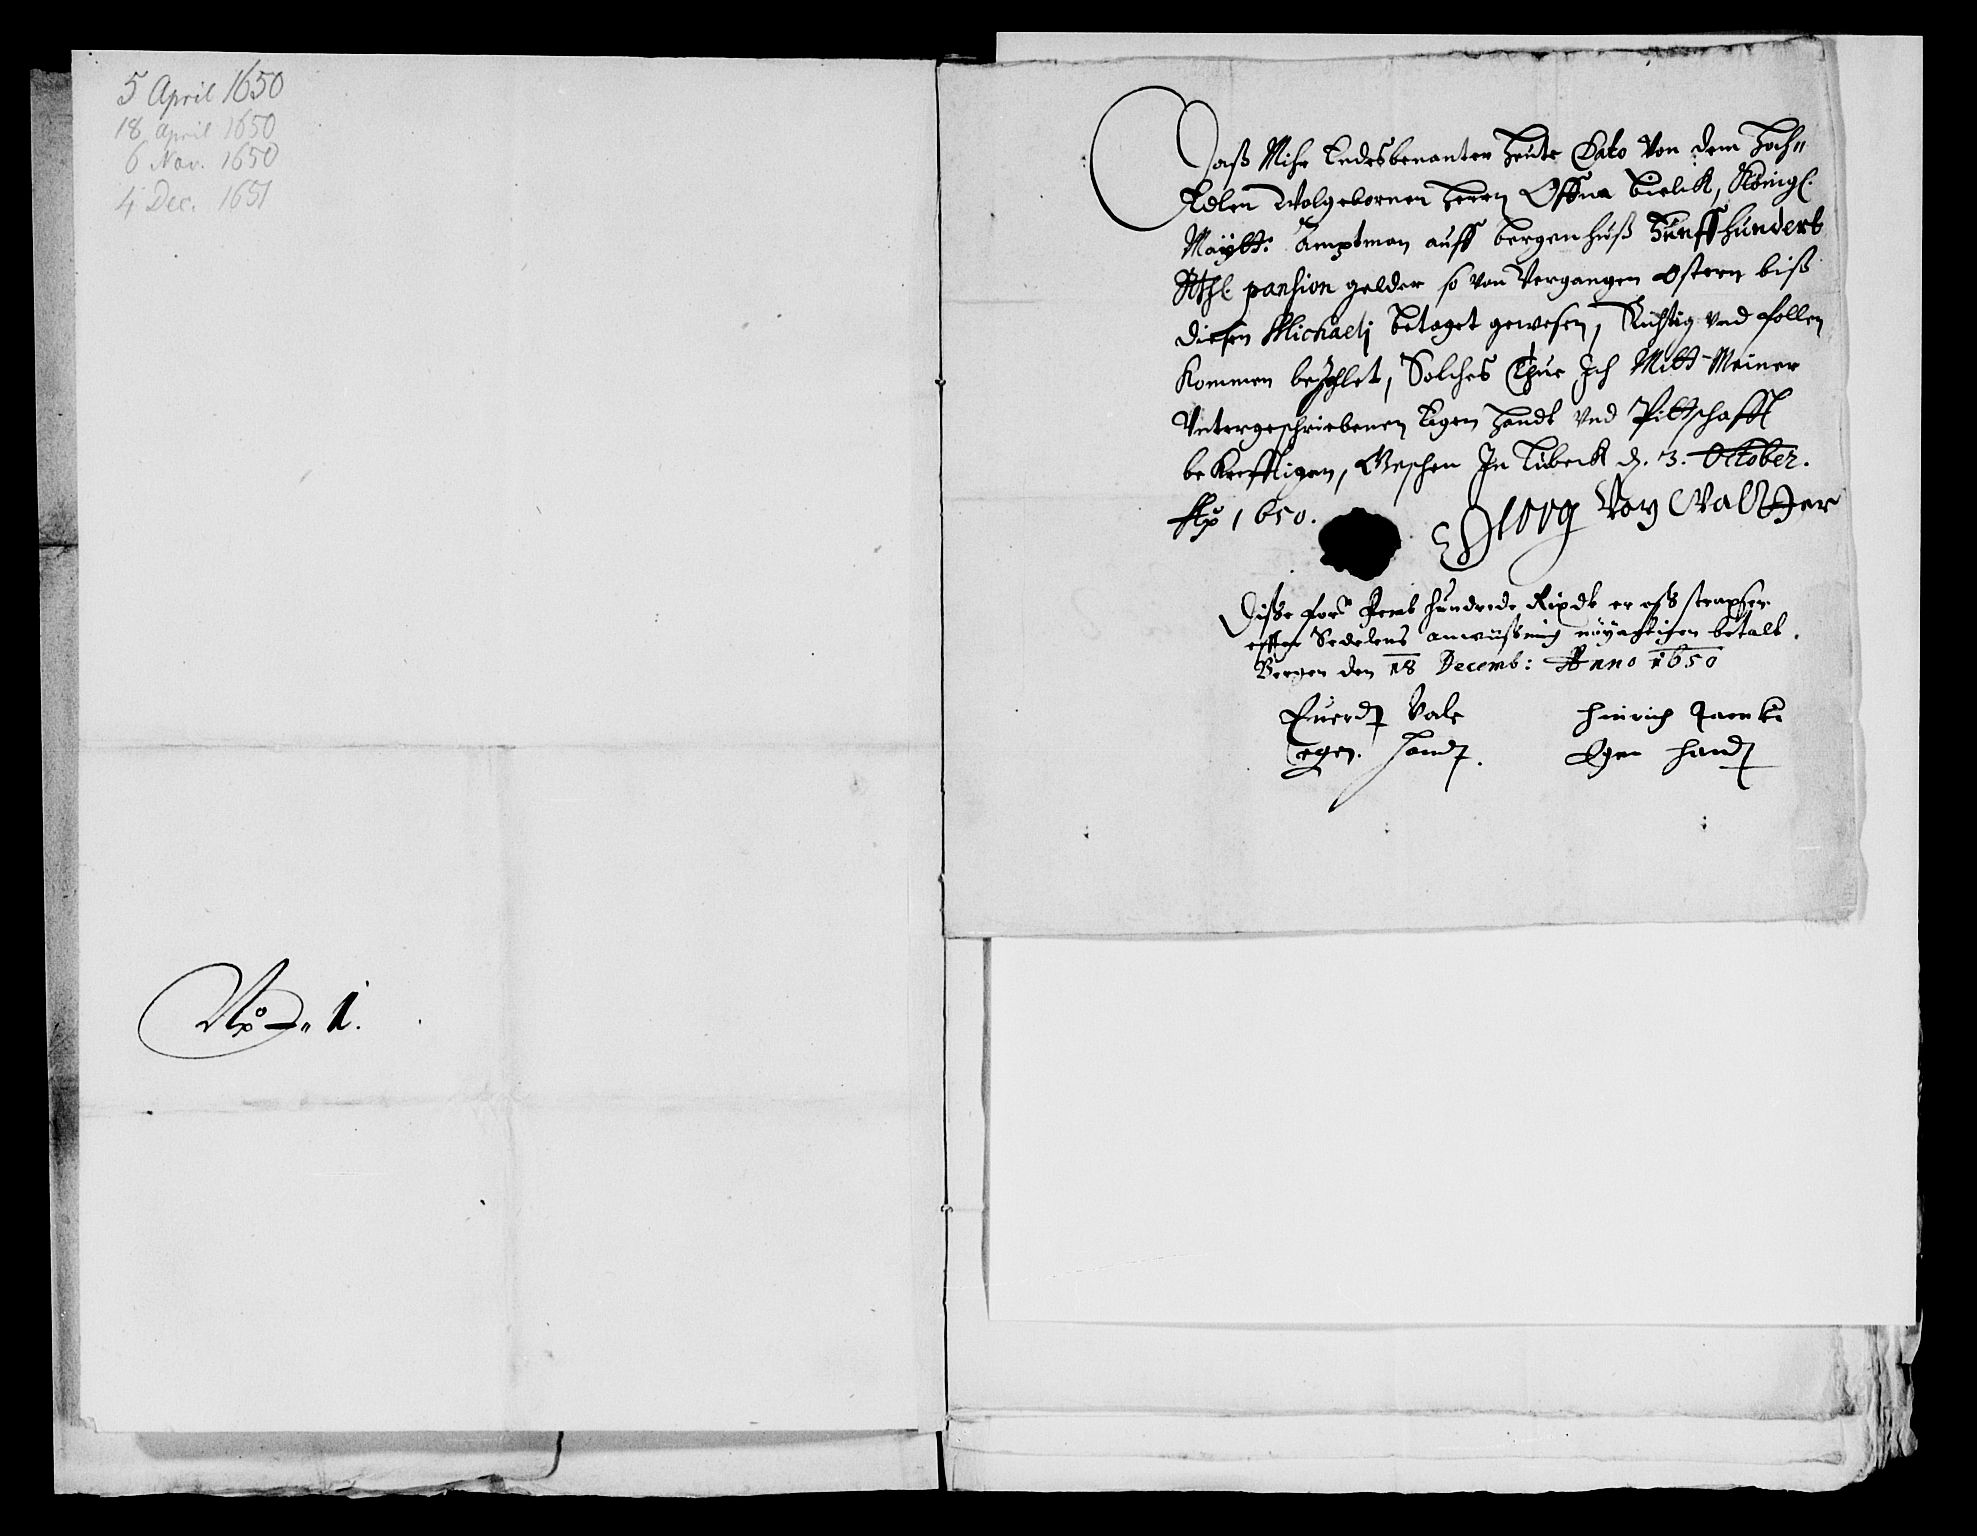 5 April 1650
18 April 1650
6 Nov. 1650
4 Dec. 1651
No. 1.
Daß Mihr Endesbenanter Heute Dato Von dem Hoch„
Edlen Wolgebornen Herrn Offue Bielck, Königl.
Maytt: Amptman auff bergenhuß Fünffhundert
Rthl. pansion gelder so von Vergangen Ostern biß
diesen Michaelj betaget gewesen, Richtig vnd follen
Kommen bezahlet, Solches Thue Ich Mitt Meiner
Vntergeschriebenen Eigen Handt vnd Pittschafft
bekrefftigen, Geschen In Lübeck d. 3. October.
Ao 1650.
Georg Von Wallter
Disse forne Femb hundrede Rixdl er oss
effter Sedelens anwiissning nöyachtigen betalt.
Bergen den 18 Decemb: Anno 1650
Euerdt Vale
egen. Handt.
Hinrich Jaenke
Egen Handt